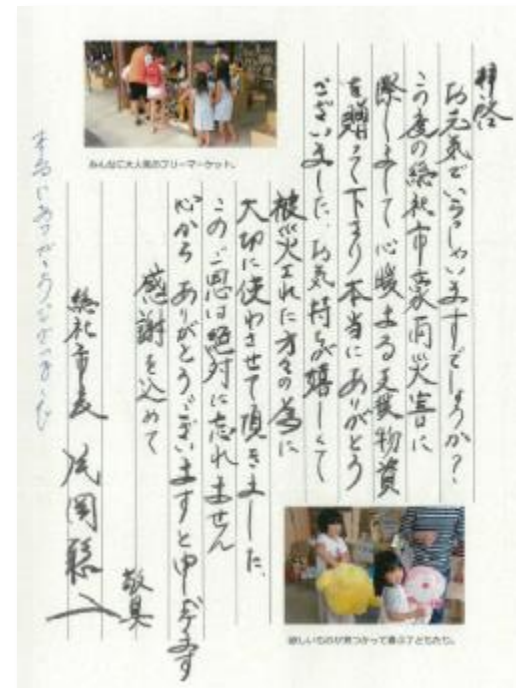 拝啓
お元気でいらっしゃいますでしょうか?
この度の総社市豪雨災害に
際しまして心暖まる支援物資
を贈って下さり本当にありがとう
ございました。お気持ちが嬉しくて
被災された方々の為に
大切に使わさせて頂きました。
このご恩は絶対に忘れません
心から ありがとうございますと申し上げます
感謝を込めて
敬具
総社市長 片岡聡一
本当にありがとうございました
みんなに大人気のフリーマーケット。
欲しいものが見つかって喜ぶ子どもたち。